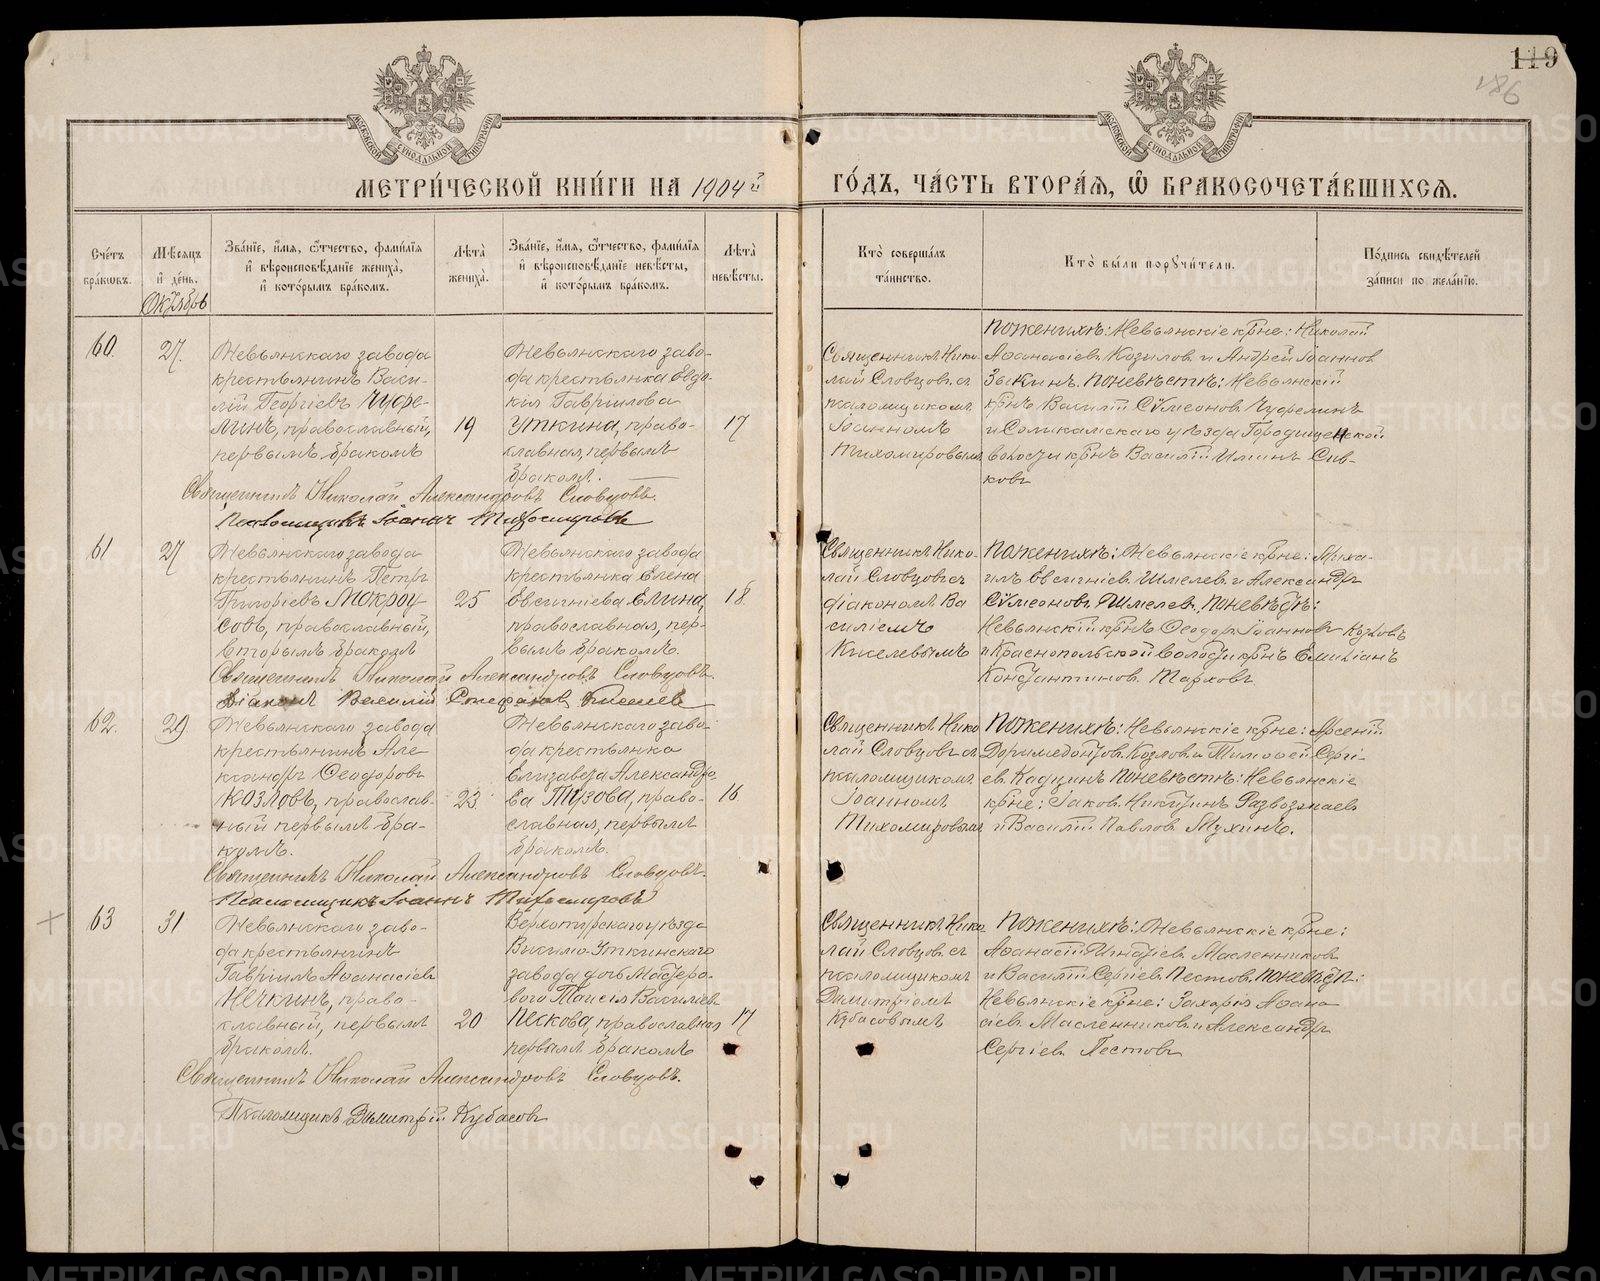 119
186
МЕТРИ́ЧЕСКОЙ КНИ́ГИ НА 1904й ГО́ДЪ, ЧА́СТЬ ВТОРА́Я, Ѡ БРАКОСОЧЕТА́ВШИХСЯ.
Сче́тъ бра́ковъ.
Мѣ́сяцъ и де́нь.
Октябрь
Зва́нїе, и́мя, ѻ҆́тчество, фами́лїя и҆ вѣроисповѣ́данїе жениха̀, и҆ кото́рымъ бра́комъ.
Лѣта̀ жениха̀.
Зва́нїе, и́мя, ѻ҆́тчество, фами́лїя и҆ вѣроисповѣ́данїе невѣ́сты, и҆ кото́рымъ бра́комъ.
Лѣта̀ невѣ́сты.
Кто̀ соверша́лъ та́инство.
Кто̀ бы́ли порꙋчи́тели.
По́дпись свидѣ́телей за́писи по жела́нїю.
60.
27.
Невьянскаго завода
крестьянинъ Васи-
лій Георгіевъ Чуфе-
линъ, православный,
первымъ бракомъ
19
Невьянскаго заво-
да крестьянка Евдо-
кія Гавріилова
Уткина, право-
славная, первымъ
бракомъ.
17
Священникъ Нико-
лай Словцовъ съ
псаломщикомъ
Іоанномъ
Тихомировымъ
По женихѣ: Невьянскіе крне: Николай
Аѳанасіевъ Козыловъ и Андрей Іоанновъ
Зыкинъ. По невѣстѣ: Невьянскій
крнъ Василій Сѵмеоновъ Чуфелинъ
и Соликамскаго уѣзда Городищенской
волости крнъ Василій Ильинъ Сив-
ковъ
Священникъ Николай Александровъ Словцовъ.
Псаломщикъ Іоаннъ Тихомировъ
61
27
Невьянскаго завода
крестьянинъ Петръ
Григоріевъ Мокроу
совъ, православный,
вторымъ бракомъ
25
Невьянскаго завода
крестьянка Елена
Евсигніева Елина,
православная, пер-
вымъ бракомъ.
18.
Священникъ Нико-
лай Словцовъ съ
діакономъ Ва
силіемъ
Киселевымъ
По женихѣ: Невьянскіе крне: Миха-
илъ Евсигніевъ Шмелевъ и Александръ
Сѵмеоновъ Шмелевъ. По невѣстѣ:
Невьянскій крнъ Ѳеодоръ Іоанновъ Козловъ
и Краснопольской волости крнъ Емиліанъ
Константиновъ Тарховъ
Священникъ Николай Александровъ Словцовъ.
Діаконъ Василій Киселевъ
62.
29.
Невьянскаго завода
крестьянинъ Але
ксандръ Ѳеодоровъ
Козловъ, православ-
ный первымъ бра-
комъ.
23
Невьянскаго заво-
да крестьянка
Елизавета Александро
ва Тузова, право-
славная, первымъ
бракомъ.
16
Священникъ Нико
лай Словцовъ съ
псаломщикомъ
Іоанномъ
Тихомировымъ
По женихѣ: Невьянскіе крне: Арсеній
Доримедонтовъ Козловъ и Тимоѳей Сергі-
евъ Кадцинъ По невѣстѣ: Невьянскіе
крне: Іаковъ Никитинъ Развозжаевъ
и Василій Павловъ Мухинъ.
Священникъ Николай Александровъ Словцовъ.
Псаломщикъ Іоаннъ Тихомировъ
63
31
Невьянскаго заво-
да крестьянинъ
Гавріилъ Аѳанасіевъ
Нечкинъ, право-
славный, первымъ
бракомъ.
20
Верхотурскаго уѣзда
Висимо-Уткинскаго
завода дочь мастеро-
вого Таисія Василіев
Пескова, православная
первымъ бракомъ
17
Священникъ Нико
лай Словцовъ съ
псаломщикомъ
Димитріемъ
Кубасовымъ
По женихѣ: Невьянскіе крне:
Аѳанасій Масленниковъ
и Василій Сергіевъ Пестовъ. По невѣстѣ:
Невьянскіе крне: Захарія Аѳана
сіевъ Масленниковъ и Александръ
Сергіевъ Пестовъ
Священникъ Николай Александровъ Словцовъ.
Псаломщикъ Димитрій Кубасовъ
METRIKI.GASO-URAL.RU